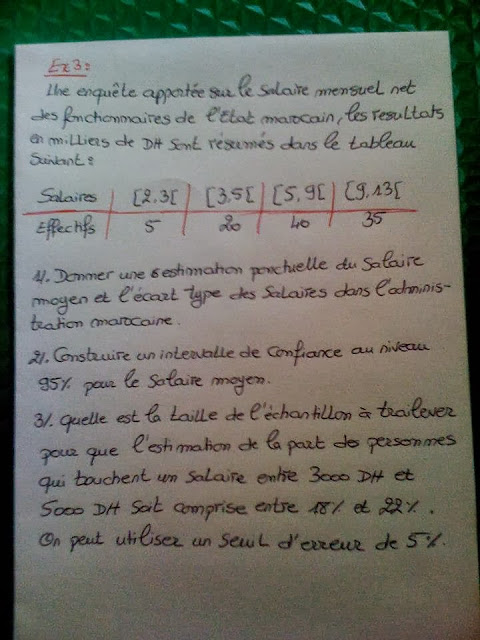 Ex3:
Une enquête apportée sur le salaire mensuel net
des fonctionnaires de l'Etat marocain, les resultats
en milliers de DH sont résumés dans le tableau
Suivant:
Salaires [2,3[ [3,5[ [5,9[ [9,13[
Effectifs 5 20 40 35
1/. Donner une estimation ponctuelle du salaire
moyen et l'écart type des salaires dans l'adminis-
tration marocaine.
2/. Construire un intervalle de confiance au niveau
95% pour le salaire moyen.
3/. Quelle est la taille de l'échantillon à
pour que l'estimation de la part des personnes
qui touchent un salaire entre 3000 DH et
5000 DH soit comprise entre 18% et 22%.
On peut utiliser un seuil d'erreur de 5%.